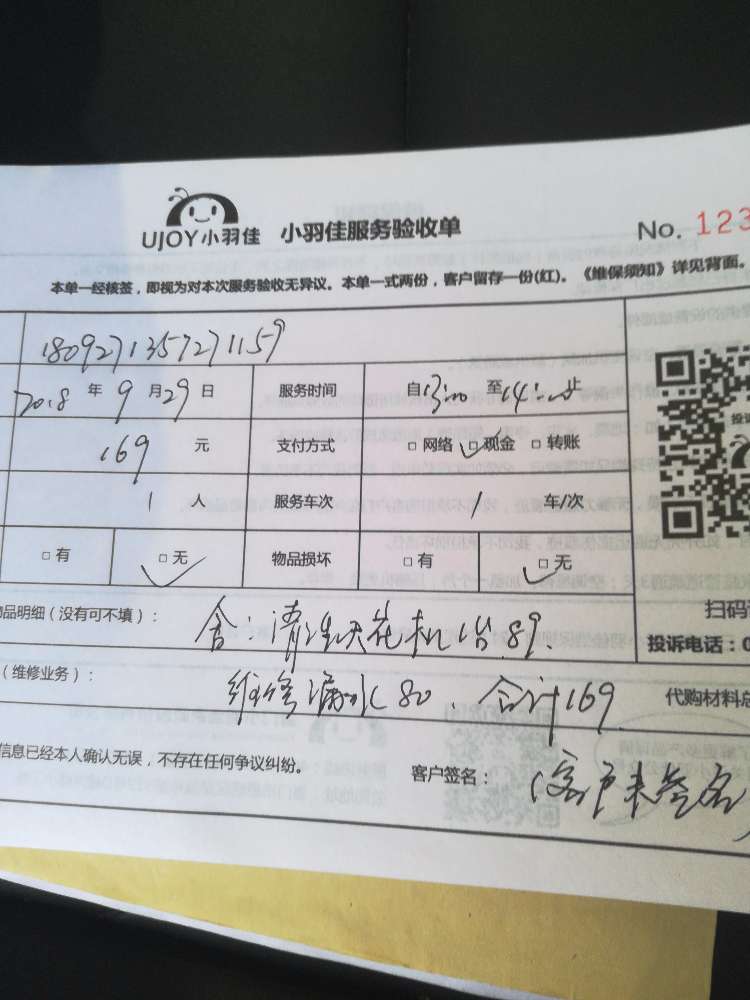 UJOY小羽佳 小羽佳服务验收单 No. 123
本单一经核签，即视为对本次服务验收无异议。本单一式两份，客户留存一份(红)。《维保须知》详见背面。
1809271357271159
2018 年 9 月 29 日 服务时间 自 13:00 至 14:00 止
169 元 支付方式 □ 网络 □ 现金 □ 转账
1 人 服务车次 1 车/次
□ 有 □ 无 物品损坏 □ 有 □ 无
品明细（没有可不填）： 含：清洗天花机1台89. 扫码
投诉电话：0
（维修业务）： 维修漏水80. 合计169 代购材料总
信息已经本人确认无误，不存在任何争议纠纷。 客户签名： (客户未签名